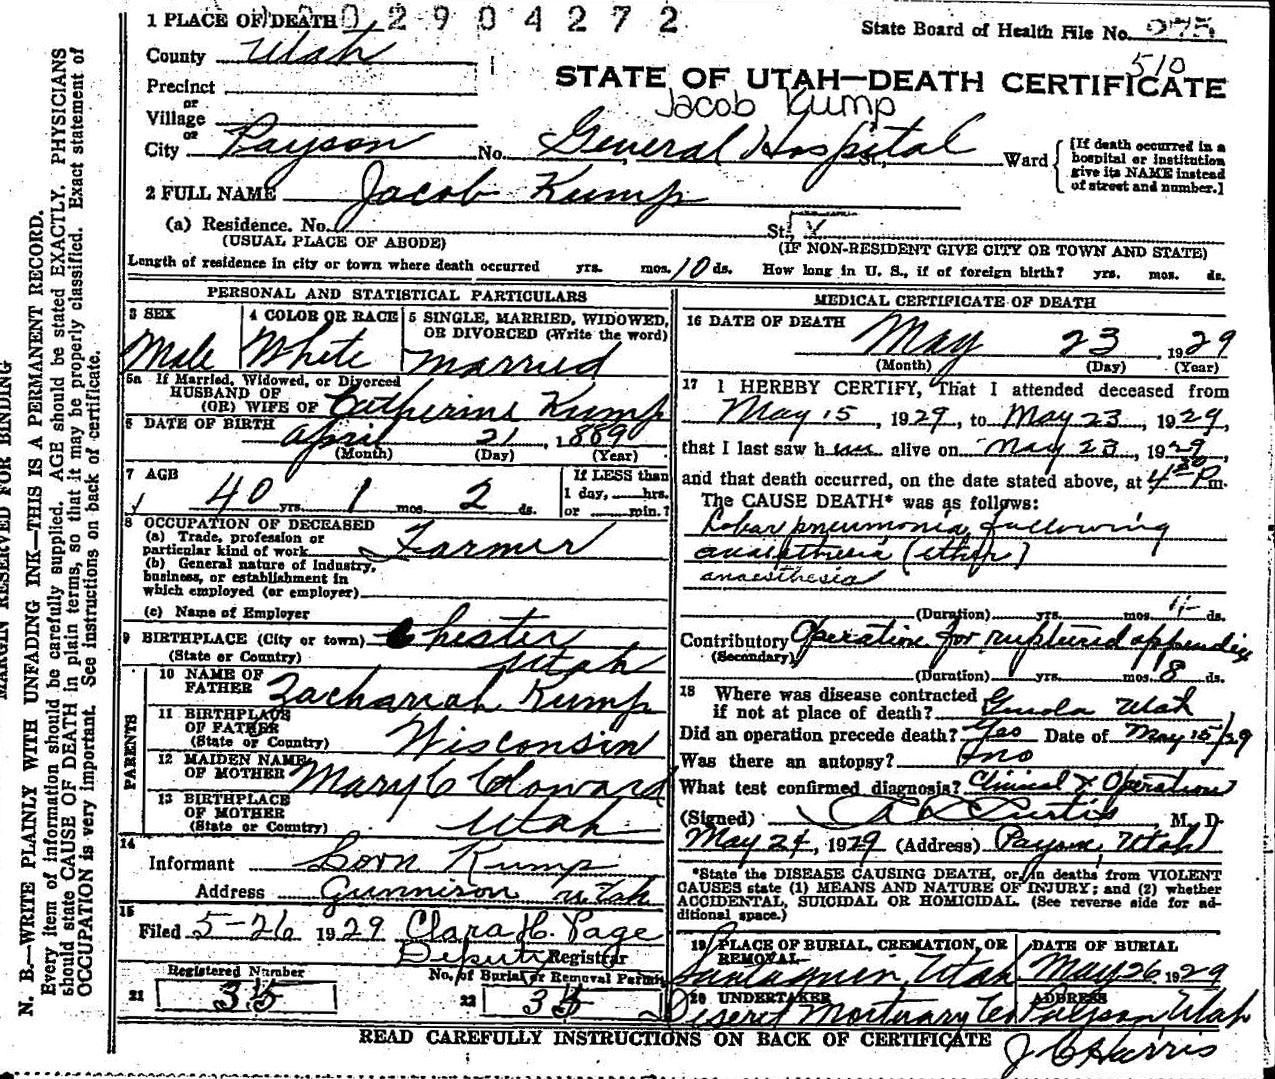 1 PLACE OF DEATH 0 2 9 0 4 2 7 2
State Board of Health File No. 275
510
County Utah
STATE OF UTAH—DEATH CERTIFICATE
Precinct
or
Jacob Kump
Village
or
City Payson No. General Hospital St., Ward
[If death occurred in a hospital or institution give its NAME instead of street and number.]
2 FULL NAME Jacob Kump
(a) Residence. No. St.
(USUAL PLACE OF ABODE) (IF NON-RESIDENT GIVE CITY OR TOWN AND STATE)
Length of residence in city or town where death occurred yrs. mos. 10 ds. How long in U. S., if of foreign birth? yrs. mos. ds.
PERSONAL AND STATISTICAL PARTICULARS
3 SEX 4 COLOR OR RACE 5 SINGLE, MARRIED, WIDOWED, OR DIVORCED (Write the word)
Male White married
5a If Married, Widowed, or Divorced
HUSBAND OF
(OR) WIFE OF Catherine Kump
6 DATE OF BIRTH April 21, 1889
(Month) (Day) (Year)
7 AGE If LESS than
40 yrs. 1 mos. 2 ds. 1 day, hrs.
or min.?
8 OCCUPATION OF DECEASED
(a) Trade, profession or
particular kind of work Farmer
(b) General nature of industry,
business, or establishment in
which employed (or employer)
(c) Name of Employer
9 BIRTHPLACE (City or town) Chester
(State or Country) Utah
PARENTS
10 NAME OF
FATHER Zachariah Kump
11 BIRTHPLACE
OF FATHER
(State or Country) Wisconsin
12 MAIDEN NAME
OF MOTHER Mary C
13 BIRTHPLACE
OF MOTHER
(State or Country) Utah
14
Informant Kump
Address Gunnison Utah
15
Filed 5-26 1929 Clara H. Page
Deputy Registrar
Registered Number No. of Burial or Removal Permit
21 35 22 35
MEDICAL CERTIFICATE OF DEATH
16 DATE OF DEATH
May 23, 1929
(Month) (Day) (Year)
17 I HEREBY CERTIFY, That I attended deceased from
May 15, 1929, to May 23, 1929,
that I last saw h alive on May 23, 1929,
and that death occurred, on the date stated above, at 4 30 P m.
The CAUSE DEATH* was as follows:
Lobar pneumonia, following
anaesthesia (ether)
anaesthesia
(Duration) yrs. mos. ds.
Contributory Operation for ruptured appendix
(Secondary)
(Duration) yrs. mos. 8 ds.
18 Where was disease contracted
if not at place of death? Genola Utah
Did an operation precede death? Yes Date of May 15/29
Was there an autopsy? no
What test confirmed diagnosis? Clinical & Operation
(Signed) Curtis, M. D.
May 24, 1929 (Address) Payson, Utah
*State the DISEASE CAUSING DEATH, or, in deaths from VIOLENT
CAUSES state (1) MEANS AND NATURE OF INJURY; and (2) whether
ACCIDENTAL, SUICIDAL OR HOMICIDAL. (See reverse side for ad-
ditional space.)
19 PLACE OF BURIAL, CREMATION, OR REMOVAL DATE OF BURIAL
Santaquin, Utah May 26 1929
20 UNDERTAKER ADDRESS
Deseret Mortuary Co Payson Utah
READ CAREFULLY INSTRUCTIONS ON BACK OF CERTIFICATE J C Harris
MARGIN RESERVED FOR BINDING
N. B.—WRITE PLAINLY WITH UNFADING INK—THIS IS A PERMANENT RECORD.
Every item of information should be carefully supplied. AGE should be stated EXACTLY. PHYSICIANS
should state CAUSE OF DEATH in plain terms, so that it may be properly classified. Exact statement of
OCCUPATION is very important. See instructions on back of certificate.